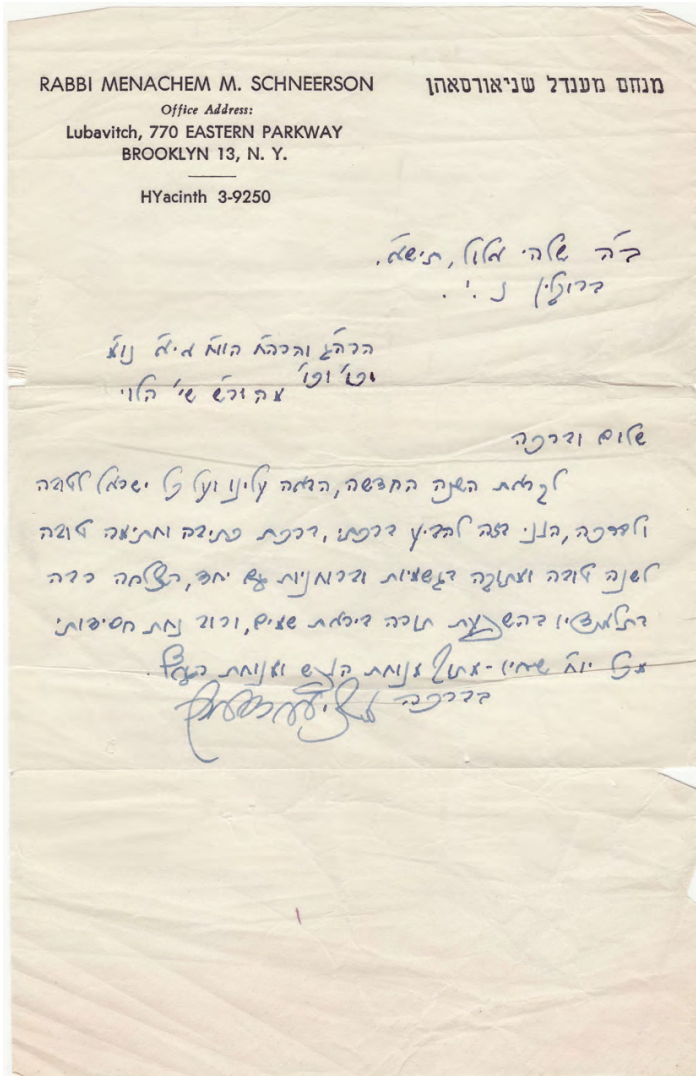 RABBI MENACHEM M. SCHNEERSON
מנחם מענדל שניאורסאהן
Office Address:
Lubavitch, 770 EASTERN PARKWAY
BROOKLYN 13, N. Y.
HYacinth 3-9250
ב"ה שלהי אלול, תישא.
ברוקלין נ.י.
הרה"ג והרה"ח הוו"ח אי"א נו"ע
וכו' וכו'
שי' הלוי
שלום וברכה
לקראת השנה החדשה, הבאה עלינו ועל כל ישראל לטובה
ולברכה, הנני בזה להביע ברכתי, ברכת כתיבה וחתימה טובה
לשנה טובה ומתוקה בגשמיות וברוחניות גם יחד, הצלחה רבה
בתלמידיו בהשפעת תורה ביראת שמים, ורוב נחת חסידותי
מכל יו"ח שיחיו - מתוך מנוחת הנפש ומנוחת הגוף.
בברכה